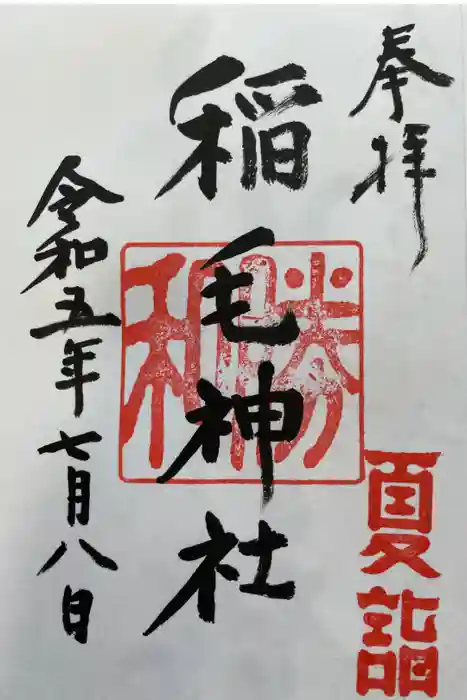 奉拝
夏詣
稲毛神社
令和五年七月八日